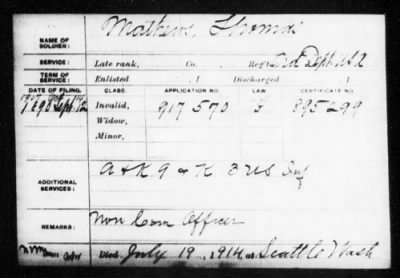 NAME OF SOLDIER: Mathews, Thomas
SERVICE: Late rank, Co. Reg't
TERM OF SERVICE: Enlisted , 1 Discharged , 1
DATE OF FILING. CLASS. APPLICATION NO. LAW. CERTIFICATE NO.
Sept Invalid, 917570 895299
Widow,
Minor,
ADDITIONAL SERVICES: A & K 9 & K 3 US Inf
REMARKS: Non Com Officer
Died July 19, 1914 at Seattle Wash